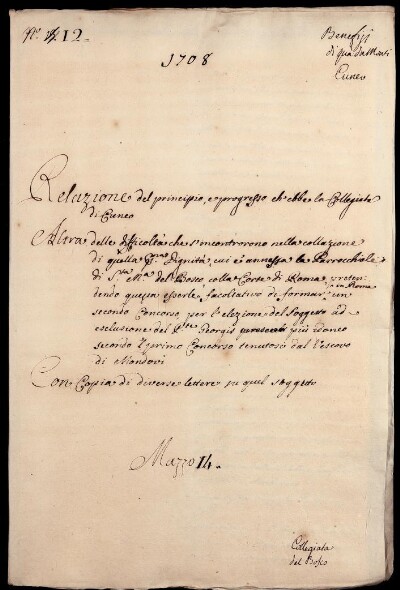 N.º 12.
Benefizj
di quà da Monti
Cuneo
1708
Relazione del principio, e progresso ch'ebbe la Collegiata
di Cuneo
Altra delle difficoltà che s'incontrorono nella collazione
di quella Dignità, cui è annessa la Parrocchiale
di S.ta M.a del Bosco, colla Corte di Roma, preten-
dendo questa esserle facoltativo di formar in Roma un
secondo Concorso, per l'elezione del Soggetto ad
esclusione del Giorgis più idoneo
secondo il primo Concorso tenutosi dal Vescovo
di Mondovi
Con Copia di diverse lettere su quel soggetto
Mazzo 14.
Collegiata
del Bosco